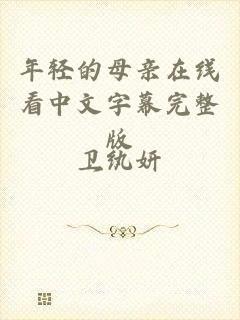 年轻的母亲在线
看中文字幕完整
版
卫纨妍